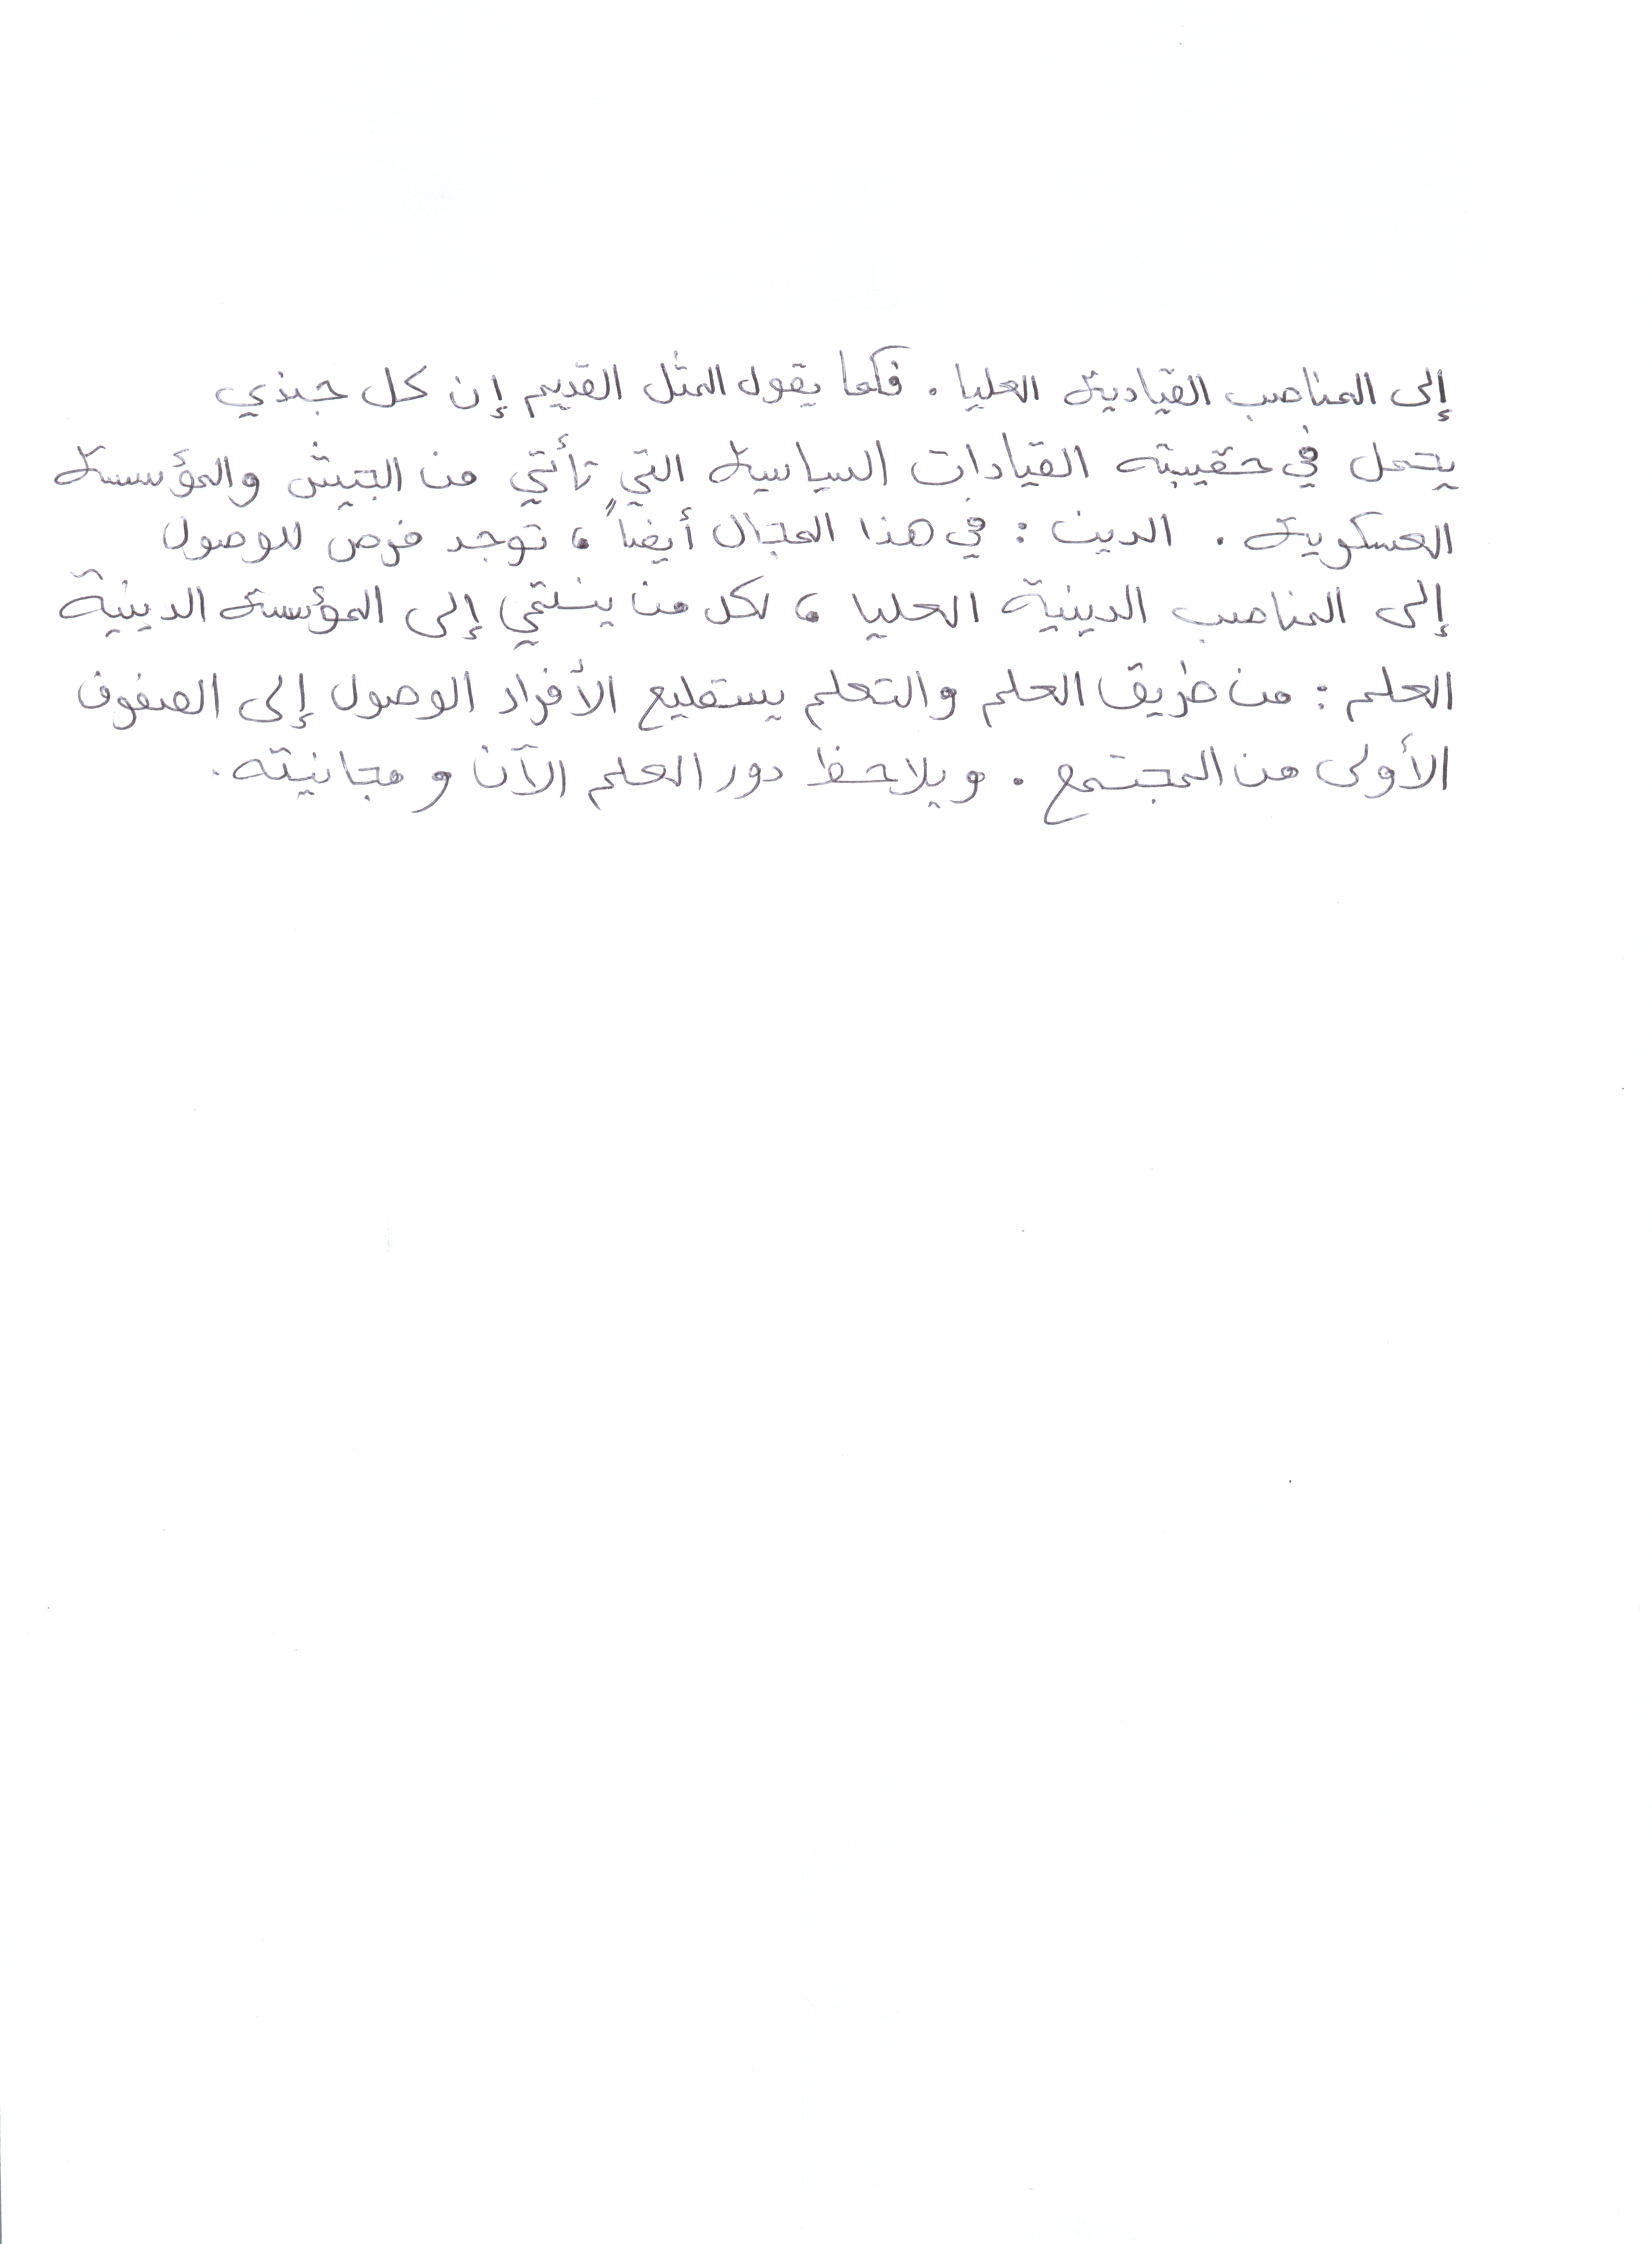 إلى المناصب القيادية العليا. فكما يقول المثل القديم إن كل جندي
يحمل في حقيبته القيادات السياسية التي تأتي من الجيش والمؤسسة
العسكرية. الدين: في هذا المجال أيضاً، توجد فرص للوصول
إلى المناصب الدينية العليا، لكل من ينتمي إلى المؤسسة الدينية
العلم: من طريق العلم والتعلم يستطيع الأفراد الوصول إلى الصفوف
الأولى من المجتمع. ويلاحظ دور العلم الآن ومجانيته.